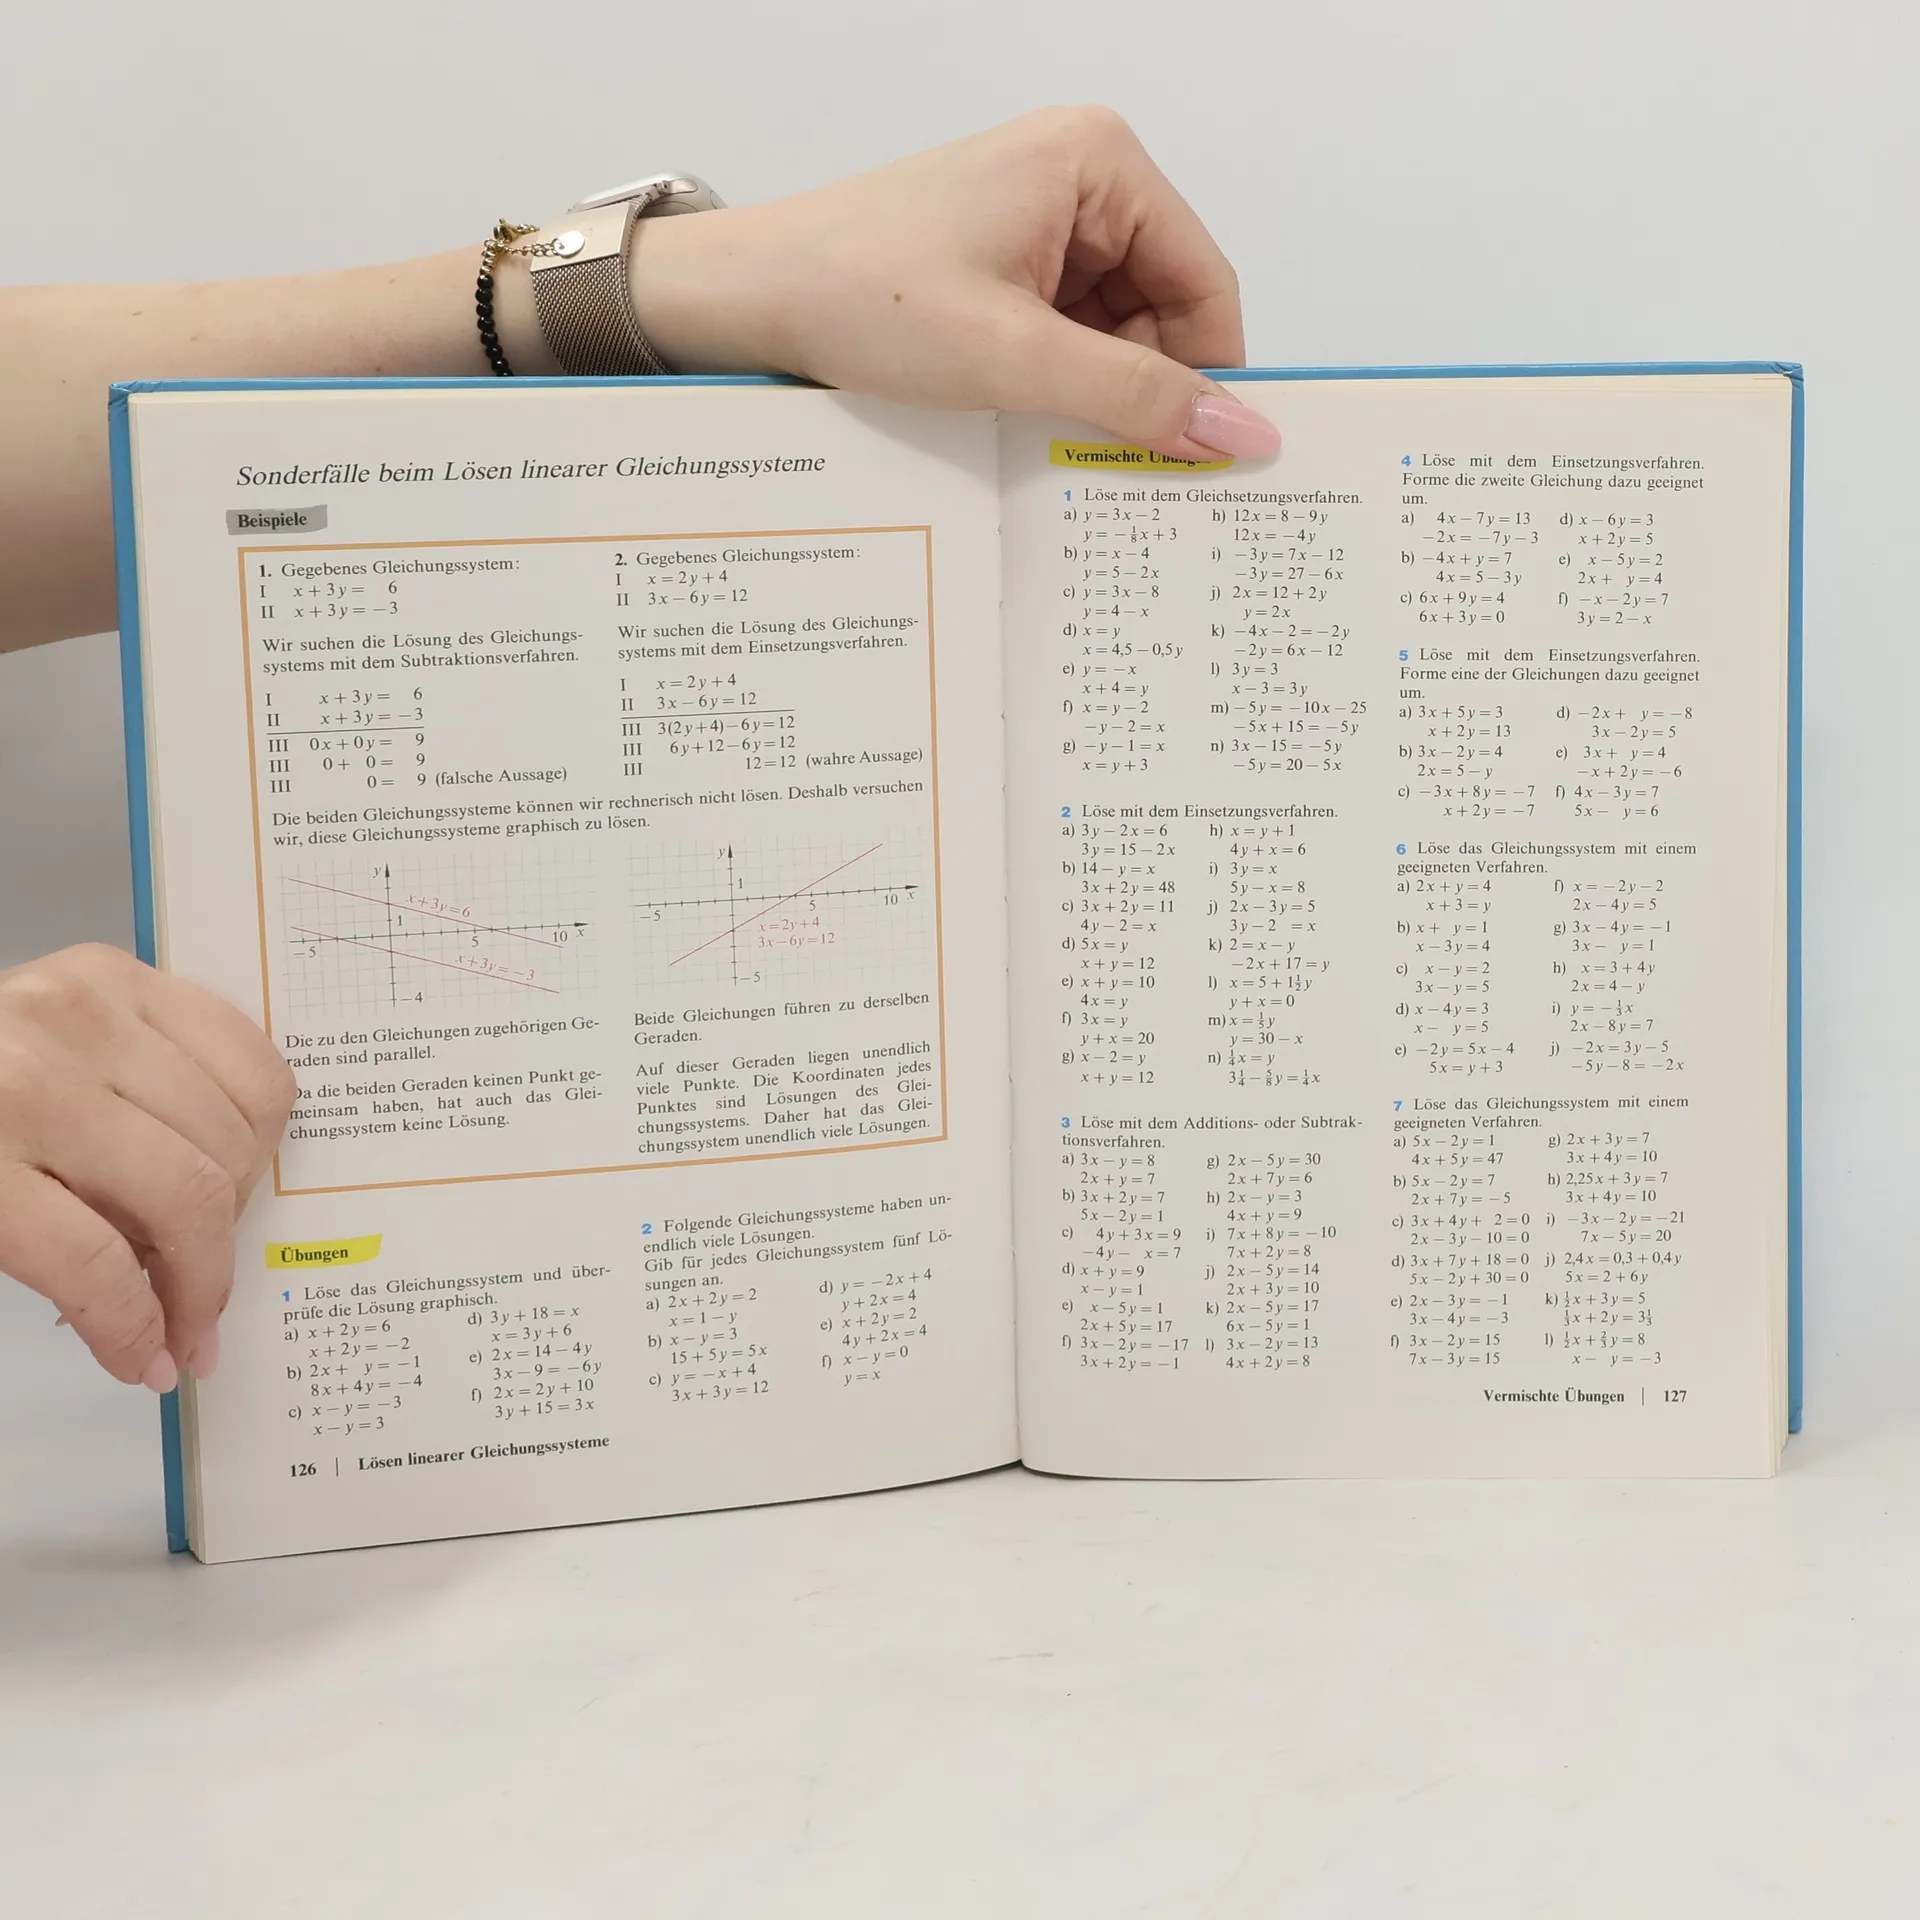 Sonderfälle beim Lösen linearer Gleichungssysteme
Beispiele
1. Gegebenes Gleichungssystem:
I x + 3y = 6
II x + 3y = −3
Wir suchen die Lösung des Gleichungs-
systems mit dem Subtraktionsverfahren.
I x + 3y = 6
II x + 3y = −3
III 0x + 0y = 9
III 0 + 0 = 9
III 0 = 9 (falsche Aussage)
2. Gegebenes Gleichungssystem:
I x = 2y + 4
II 3x − 6y = 12
Wir suchen die Lösung des Gleichungs-
systems mit dem Einsetzungsverfahren.
I x = 2y + 4
II 3x − 6y = 12
III 3(2y+4)−6y=12
III 6y+12−6y=12
III 12=12 (wahre Aussage)
Die beiden Gleichungssysteme können wir rechnerisch nicht lösen. Deshalb versuchen
wir, diese Gleichungssysteme graphisch zu lösen.
y
x+3y=6
1
−5
5
10 x
x+3y=−3
−4
y
1
−5
5
10 x
x=2y+4
3x−6y=12
−5
Die zu den Gleichungen zugehörigen Ge-
raden sind parallel.
Da die beiden Geraden keinen Punkt ge-
meinsam haben, hat auch das Glei-
chungssystem keine Lösung.
Beide Gleichungen führen zu derselben
Geraden.
Auf dieser Geraden liegen unendlich
viele Punkte. Die Koordinaten jedes
Punktes sind Lösungen des Glei-
chungssystems. Daher hat das Glei-
chungssystem unendlich viele Lösungen.
Übungen
1 Löse das Gleichungssystem und über-
prüfe die Lösung graphisch.
a) x + 2y = 6
x + 2y = −2
b) 2x + y = −1
8x + 4y = −4
c) x − y = −3
x − y = 3
d) 3y + 18 = x
x = 3y + 6
e) 2x = 14 − 4y
3x − 9 = −6y
f) 2x = 2y + 10
3y + 15 = 3x
2 Folgende Gleichungssysteme haben un-
endlich viele Lösungen.
Gib für jedes Gleichungssystem fünf Lö-
sungen an.
a) 2x + 2y = 2
x = 1 − y
b) x − y = 3
15 + 5y = 5x
c) y = −x + 4
3x + 3y = 12
d) y = −2x + 4
y + 2x = 4
e) x + 2y = 2
4y + 2x = 4
f) x − y = 0
y = x
126 | Lösen linearer Gleichungssysteme
Vermischte
1 Löse mit dem Gleichsetzungsverfahren.
a) y = 3x − 2
y = −⅛x + 3
b) y = x − 4
y = 5 − 2x
c) y = 3x − 8
y = 4 − x
d) x = y
x = 4,5 − 0,5y
e) y = −x
x + 4 = y
f) x = y − 2
−y − 2 = x
g) −y − 1 = x
x = y + 3
h) 12x = 8 − 9y
12x = −4y
i) −3y = 7x − 12
−3y = 27 − 6x
j) 2x = 12 + 2y
y = 2x
k) −4x − 2 = −2y
−2y = 6x − 12
l) 3y = 3
x − 3 = 3y
m) −5y = −10x − 25
−5x + 15 = −5y
n) 3x − 15 = −5y
−5y = 20 − 5x
2 Löse mit dem Einsetzungsverfahren.
a) 3y − 2x = 6
3y = 15 − 2x
b) 14 − y = x
3x + 2y = 48
c) 3x + 2y = 11
4y − 2 = x
d) 5x = y
x + y = 12
e) x + y = 10
4x = y
f) 3x = y
y + x = 20
g) x − 2 = y
x + y = 12
h) x = y + 1
4y + x = 6
i) 3y = x
5y − x = 8
j) 2x − 3y = 5
3y − 2 = x
k) 2 = x − y
−2x + 17 = y
l) x = 5 + 1½y
y + x = 0
m) x = ⅕y
y = 30 − x
n) ¼x = y
3¼ − ⅝y = ¼x
3 Löse mit dem Additions- oder Subtrak-
tionsverfahren.
a) 3x − y = 8
2x + y = 7
b) 3x + 2y = 7
5x − 2y = 1
c) 4y + 3x = 9
−4y − x = 7
d) x + y = 9
x − y = 1
e) x − 5y = 1
2x + 5y = 17
f) 3x − 2y = −17
3x + 2y = −1
g) 2x − 5y = 30
2x + 7y = 6
h) 2x − y = 3
4x + y = 9
i) 7x + 8y = −10
7x + 2y = 8
j) 2x − 5y = 14
2x + 3y = 10
k) 2x − 5y = 17
6x − 5y = 1
l) 3x − 2y = 13
4x + 2y = 8
4 Löse mit dem Einsetzungsverfahren.
Forme die zweite Gleichung dazu geeignet
um.
a) 4x − 7y = 13
−2x = −7y − 3
b) −4x + y = 7
4x = 5 − 3y
c) 6x + 9y = 4
6x + 3y = 0
d) x − 6y = 3
x + 2y = 5
e) x − 5y = 2
2x + y = 4
f) −x − 2y = 7
3y = 2 − x
5 Löse mit dem Einsetzungsverfahren.
Forme eine der Gleichungen dazu geeignet
um.
a) 3x + 5y = 3
x + 2y = 13
b) 3x − 2y = 4
2x = 5 − y
c) −3x + 8y = −7
x + 2y = −7
d) −2x + y = −8
3x − 2y = 5
e) 3x + y = 4
−x + 2y = −6
f) 4x − 3y = 7
5x − y = 6
6 Löse das Gleichungssystem mit einem
geeigneten Verfahren.
a) 2x + y = 4
x + 3 = y
b) x + y = 1
x − 3y = 4
c) x − y = 2
3x − y = 5
d) x − 4y = 3
x − y = 5
e) −2y = 5x − 4
5x = y + 3
f) x = −2y − 2
2x − 4y = 5
g) 3x − 4y = −1
3x − y = 1
h) x = 3 + 4y
2x = 4 − y
i) y = −⅓x
2x − 8y = 7
j) −2x = 3y − 5
−5y − 8 = −2x
7 Löse das Gleichungssystem mit einem
geeigneten Verfahren.
a) 5x − 2y = 1
4x + 5y = 47
b) 5x − 2y = 7
2x + 7y = −5
c) 3x + 4y + 2 = 0
2x − 3y − 10 = 0
d) 3x + 7y + 18 = 0
5x − 2y + 30 = 0
e) 2x − 3y = −1
3x − 4y = −3
f) 3x − 2y = 15
7x − 3y = 15
g) 2x + 3y = 7
3x + 4y = 10
h) 2,25x + 3y = 7
3x + 4y = 10
i) −3x − 2y = −21
7x − 5y = 20
j) 2,4x = 0,3 + 0,4y
5x = 2 + 6y
k) ½x + 3y = 5
⅓x + 2y = 3⅓
l) ½x + ⅔y = 8
x − y = −3
Vermischte Übungen | 127